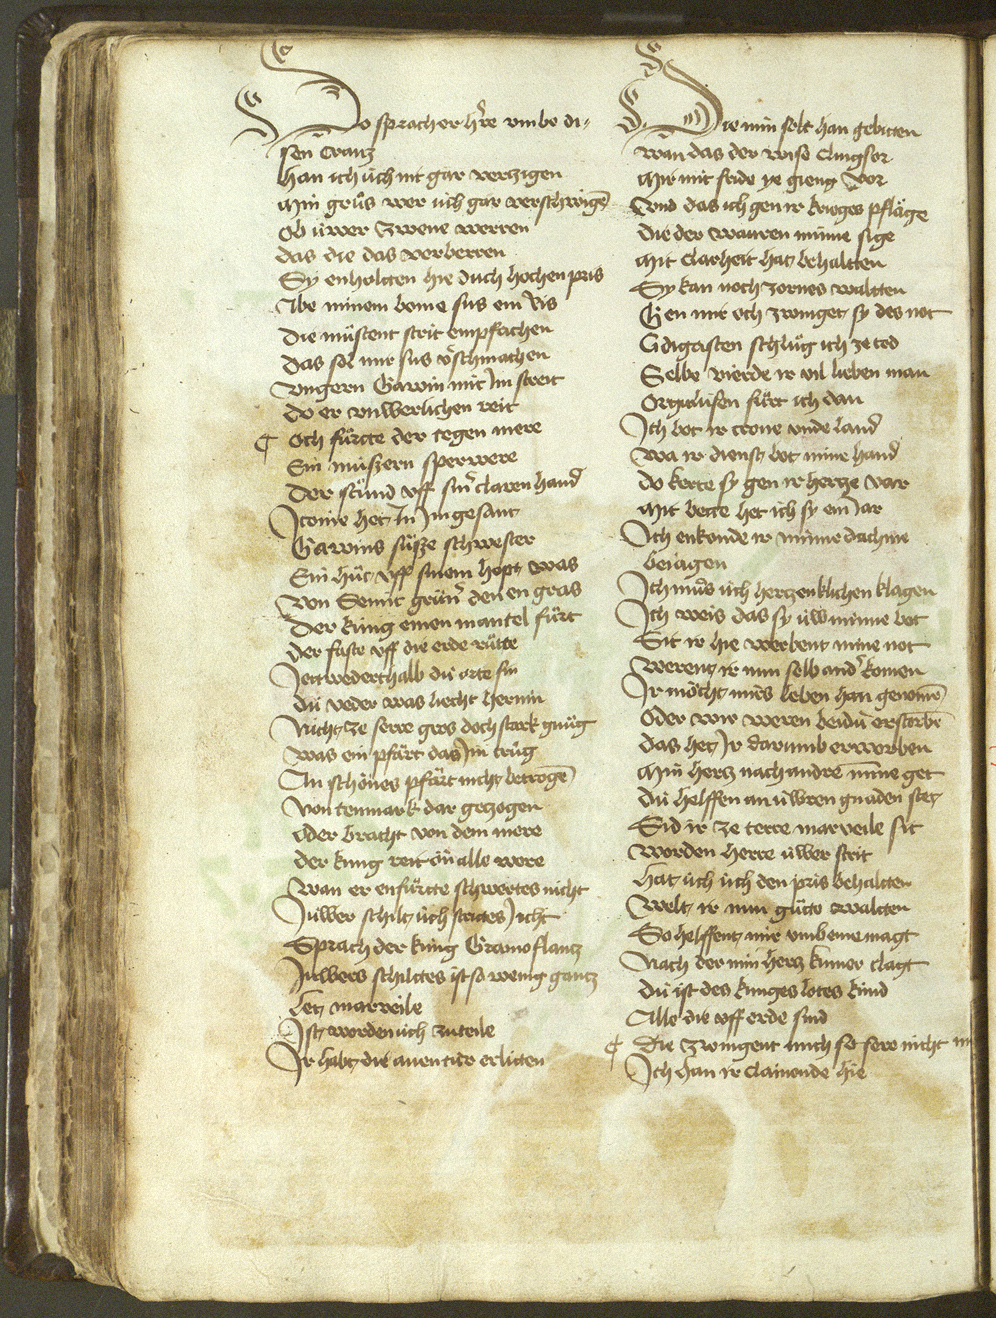 Do sprach er hře vmbe di-
sen Cranz
han ich üch nit gar verzigen
Min grůs wer üch gar verschwigē
Ob üwer zwene werren
das die das verberren
Sy enholtten hie duch hochen pris
Abe minem bome sus ein ris
Die müstent strit empfachen
das sol mir sus v̄schmachen
vngern Gawin mit Im streit
do er vnwerlichen reit
¶ Och fürtte der tegen mere
Ein muszern sperwere
Der stůnd vff sinr̄ claren hand
Itonie het In Im gesant
Gawins süsze schwester
Ein hůt vff sinem hopt was
von Semit grün den en gras
Der küng einen mantel fürt
der faste vff die erde rürte
Jettwederthalb dü orte sin
dü veder was liecht hermin
Nicht ze serre gros doch starck gnůg
was ein pfärt das Im trůg
An schönes pfärt nicht betrogē
von tenmark dar gezogen
oder bracht von dem mere
der küng reit ön alle were
wan er enfürtte schwertes nicht
Jüwer schilt üch strites Jcht
Sprach der küng Gramoflanz
Jüwers schiltes ist so wenig gantz
Letz marveile
Ist worden üch zů teile
Ir habt die auentür erlitten
Die min solt han gebitten
wan das der wise clingsor
Mir mit fride ye gieng vor
vnd das ich gen ir krieges pfläge
die der wauren minne sige
Mit clarheit hat behaltten
Sy kan noch zornes waltten
Gen mir och zwinget sy des not
Cidigasten schlůg ich ze tod
Selbe vierde ir vil lieben man
Orgulusen fürt ich dan
Ich bot ir crone vnde land
wa ir dienst bot mine hand
do kerte sy gen ir hertze var
Mit bette het ich sy ein Jar
Ich enkonde ir minne dachine
beiagen
Ich můs üch hertzenklichen klagen
Ich weis das sy üw minne bot
Sit ir hie werbent mine not
werent ir nun selb andr̄ komen
Ir möcht mirs leben han genomē
Oder wir weren beidü erstorbē
das het Ir darumb erworben
Min hertz nach andrē mīne get
dü helffen an üwren gnaden stet
Sid ir ze terre marveile sit
worden herre üwer strit
hat üch üch den pris behaltten
welt ir nun gütte waltten
So helffent mir vmb eine magt
Nach der min hertz kumer clagt
dü ist des künges lotes kind
Alle die vff erde sind
¶ Die zwingent mich so sere nicht nie
Ich han ir clainende hie